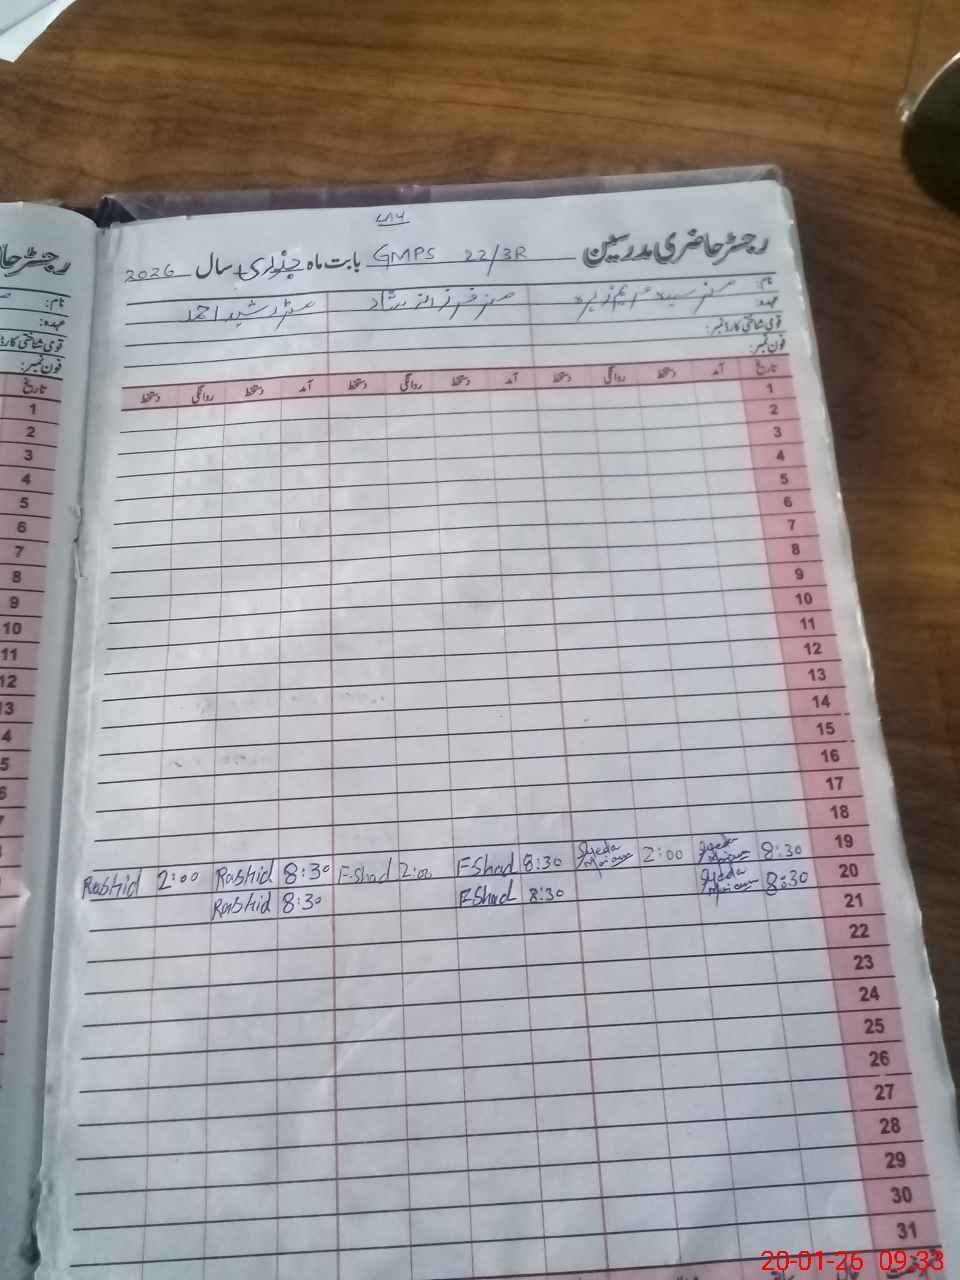 ۷۸۶
رجسٹر حاضری مدرسین GMPS 22/3R بابت ماہ جنوری سال 2026
نام: مسز سیدہ مریم زہرہ مسٹر رشید احمد
عہدہ:
قومی شناختی کارڈ نمبر:
فون نمبر:
تاریخ آمد دستخط روانگی دستخط آمد دستخط روانگی دستخط آمد دستخط روانگی دستخط
1
2
3
4
5
6
7
8
9
10
11
12
13
14
15
16
17
18
19 8:30 Syeda Mariam 2:00 Syeda Mariam 8:30 F-Shad 2:00 F-Shad 8:30 Rashid 2:00 Rashid
20 8:30 Syeda Mariam 8:30 F-Shad 8:30 Rashid
21
22
23
24
25
26
27
28
29
30
31
رجسٹر حا
نام:
عہدہ:
قومی شناختی کارڈ
فون نمبر:
تاریخ
1
2
3
4
5
6
7
8
9
10
11
12
13
20-01-26 09:33